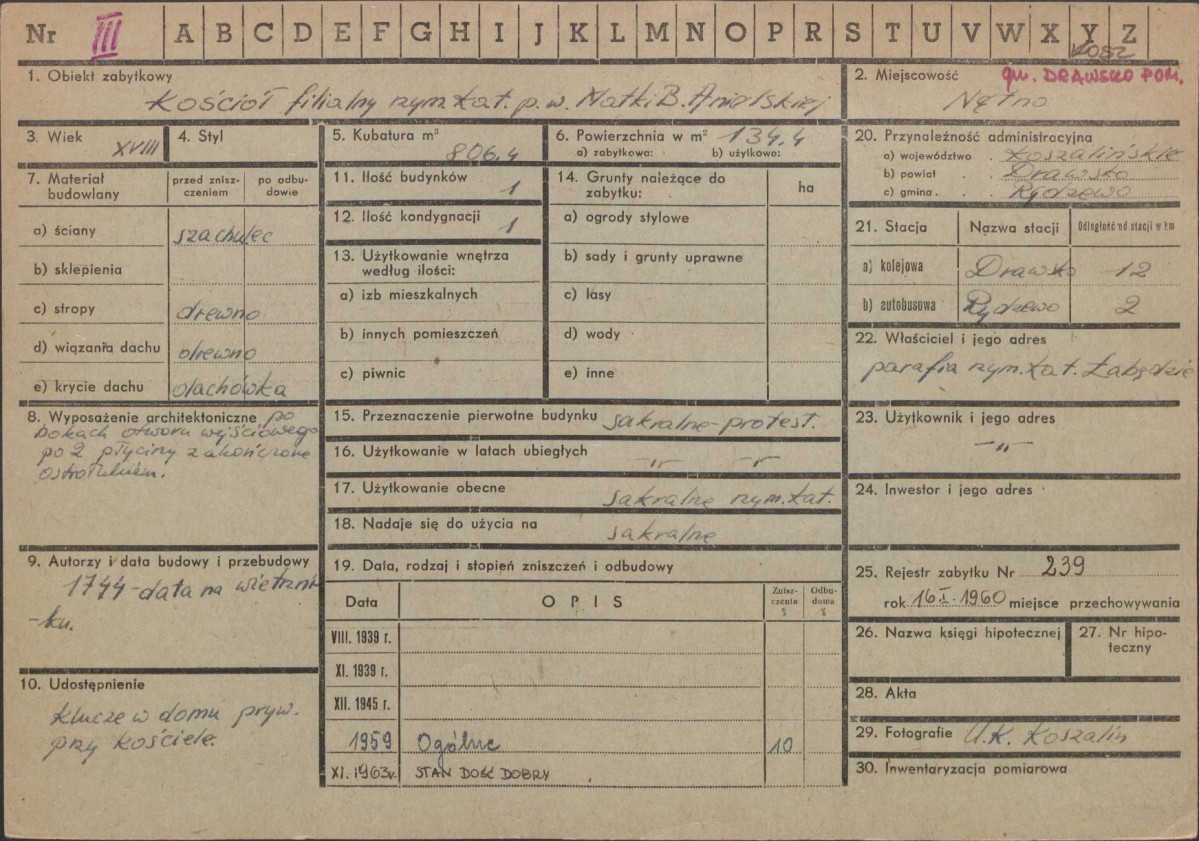 Nr III A B C D E F G H I J K L M N O P R S T U V W X Y Z
KOSZ
1. Obiekt zabytkowy
Kościół filialny rzym.kat. p.w. Matki B. Anielskiej
2. Miejscowość gm. DRAWSKO POM.
Nętno
3. Wiek XVIII
4. Styl
5. Kubatura m³
806,4
6. Powierzchnia w m² 134,4
a) zabytkowa: b) użytkowa:
7. Materiał budowlany
przed zniszczeniem
po odbudowie
a) ściany szachulec
b) sklepienia
c) stropy drewno
d) wiązania dachu drewno
e) krycie dachu dachówka
8. Wyposażenie architektoniczne po
bokach otworu wejściowego
po 2 płyciny zakończone
ostrołukiem.
9. Autorzy i data budowy i przebudowy
1744 - data na wietrzni-
-ku.
10. Udostępnienie
Klucze w domu pryw.
przy kościele.
11. Ilość budynków 1
12. Ilość kondygnacji 1
13. Użytkowanie wnętrza
według ilości:
a) izb mieszkalnych
b) innych pomieszczeń
c) piwnic
14. Grunty należące do
zabytku:
ha
a) ogrody stylowe
b) sady i grunty uprawne
c) lasy
d) wody
e) inne
15. Przeznaczenie pierwotne budynku sakralne-protest.
16. Użytkowanie w latach ubiegłych -"- -"-
17. Użytkowanie obecne sakralne rzym.kat.
18. Nadaje się do użycia na sakralne
19. Data, rodzaj i stopień zniszczeń i odbudowy
Data
OPIS
Zniszczenia %
Odbudowa %
VIII. 1939 r.
XI. 1939 r.
XII. 1945 r.
1959 Ogólne 10
XI. 1963r. STAN DOŚĆ DOBRY
20. Przynależność administracyjna
a) województwo . Koszalińskie
b) powiat . Drawsko
c) gmina . Rydzewo
21. Stacja
Nazwa stacji
Odległość od stacji w km
a) kolejowa Drawsko 12
b) autobusowa Rydzewo 2
22. Właściciel i jego adres
parafia rzym.kat. Łabędzie
23. Użytkownik i jego adres
-"-
24. Inwestor i jego adres
25. Rejestr zabytku Nr 239
rok 16 I. 1960 miejsce przechowywania
26. Nazwa księgi hipotecznej
27. Nr hipo-
teczny
28. Akta
29. Fotografie U.K. Koszalin
30. Inwentaryzacja pomiarowa